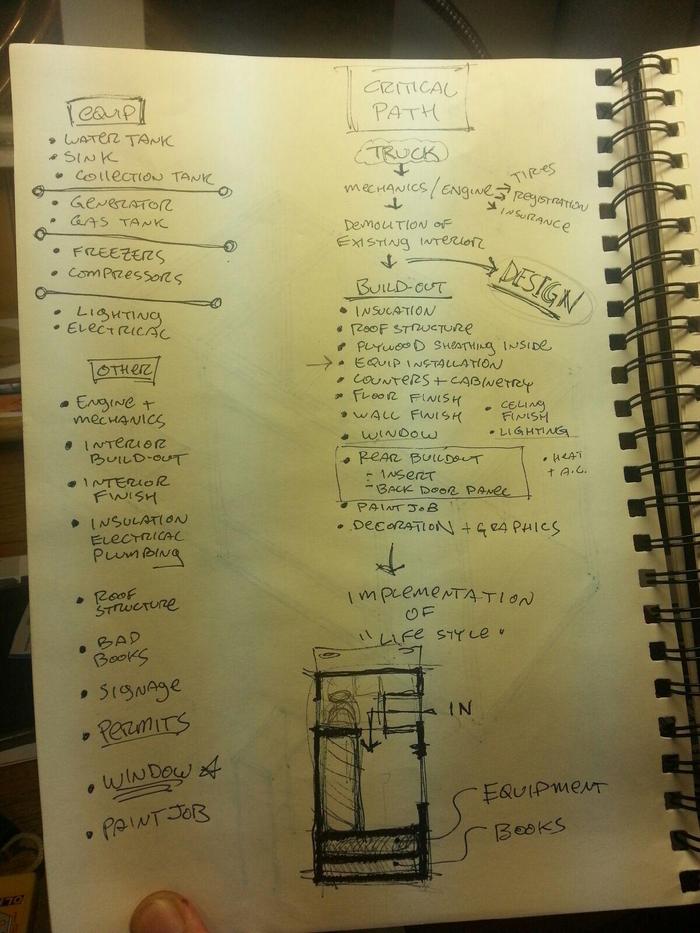 EQUIP
• WATER TANK
• SINK
• COLLECTION TANK
• GENERATOR
• GAS TANK
• FREEZERS
• COMPRESSORS
• LIGHTING
• ELECTRICAL
OTHER
• ENGINE +
MECHANICS
• INTERIOR
BUILD-OUT
• INTERIOR
FINISH
• INSULATION
ELECTRICAL
PLUMBING
• ROOF
STRUCTURE
• BAD
BOOKS
• SIGNAGE
• PERMITS
• WINDOW
• PAINT JOB
CRITICAL
PATH
TRUCK
MECHANICS/ENGINE
TIRES
REGISTRATION
INSURANCE
DEMOLITION OF
EXISTING INTERIOR
DESIGN
BUILD-OUT
• INSULATION
• ROOF STRUCTURE
• PLYWOOD SHEATHING INSIDE
• EQUIP INSTALLATION
• COUNTERS + CABINETRY
• FLOOR FINISH
• WALL FINISH
• WINDOW
• CELING
FINISH
• LIGHTING
• HEAT
+ A.C.
• REAR BUILDOUT
- INSERT
- BACK DOOR PANEL
• PAINT JOB
• DECORATION + GRAPHICS
IMPLEMENTATION
OF
"LIFE STYLE"
IN
EQUIPMENT
BOOKS